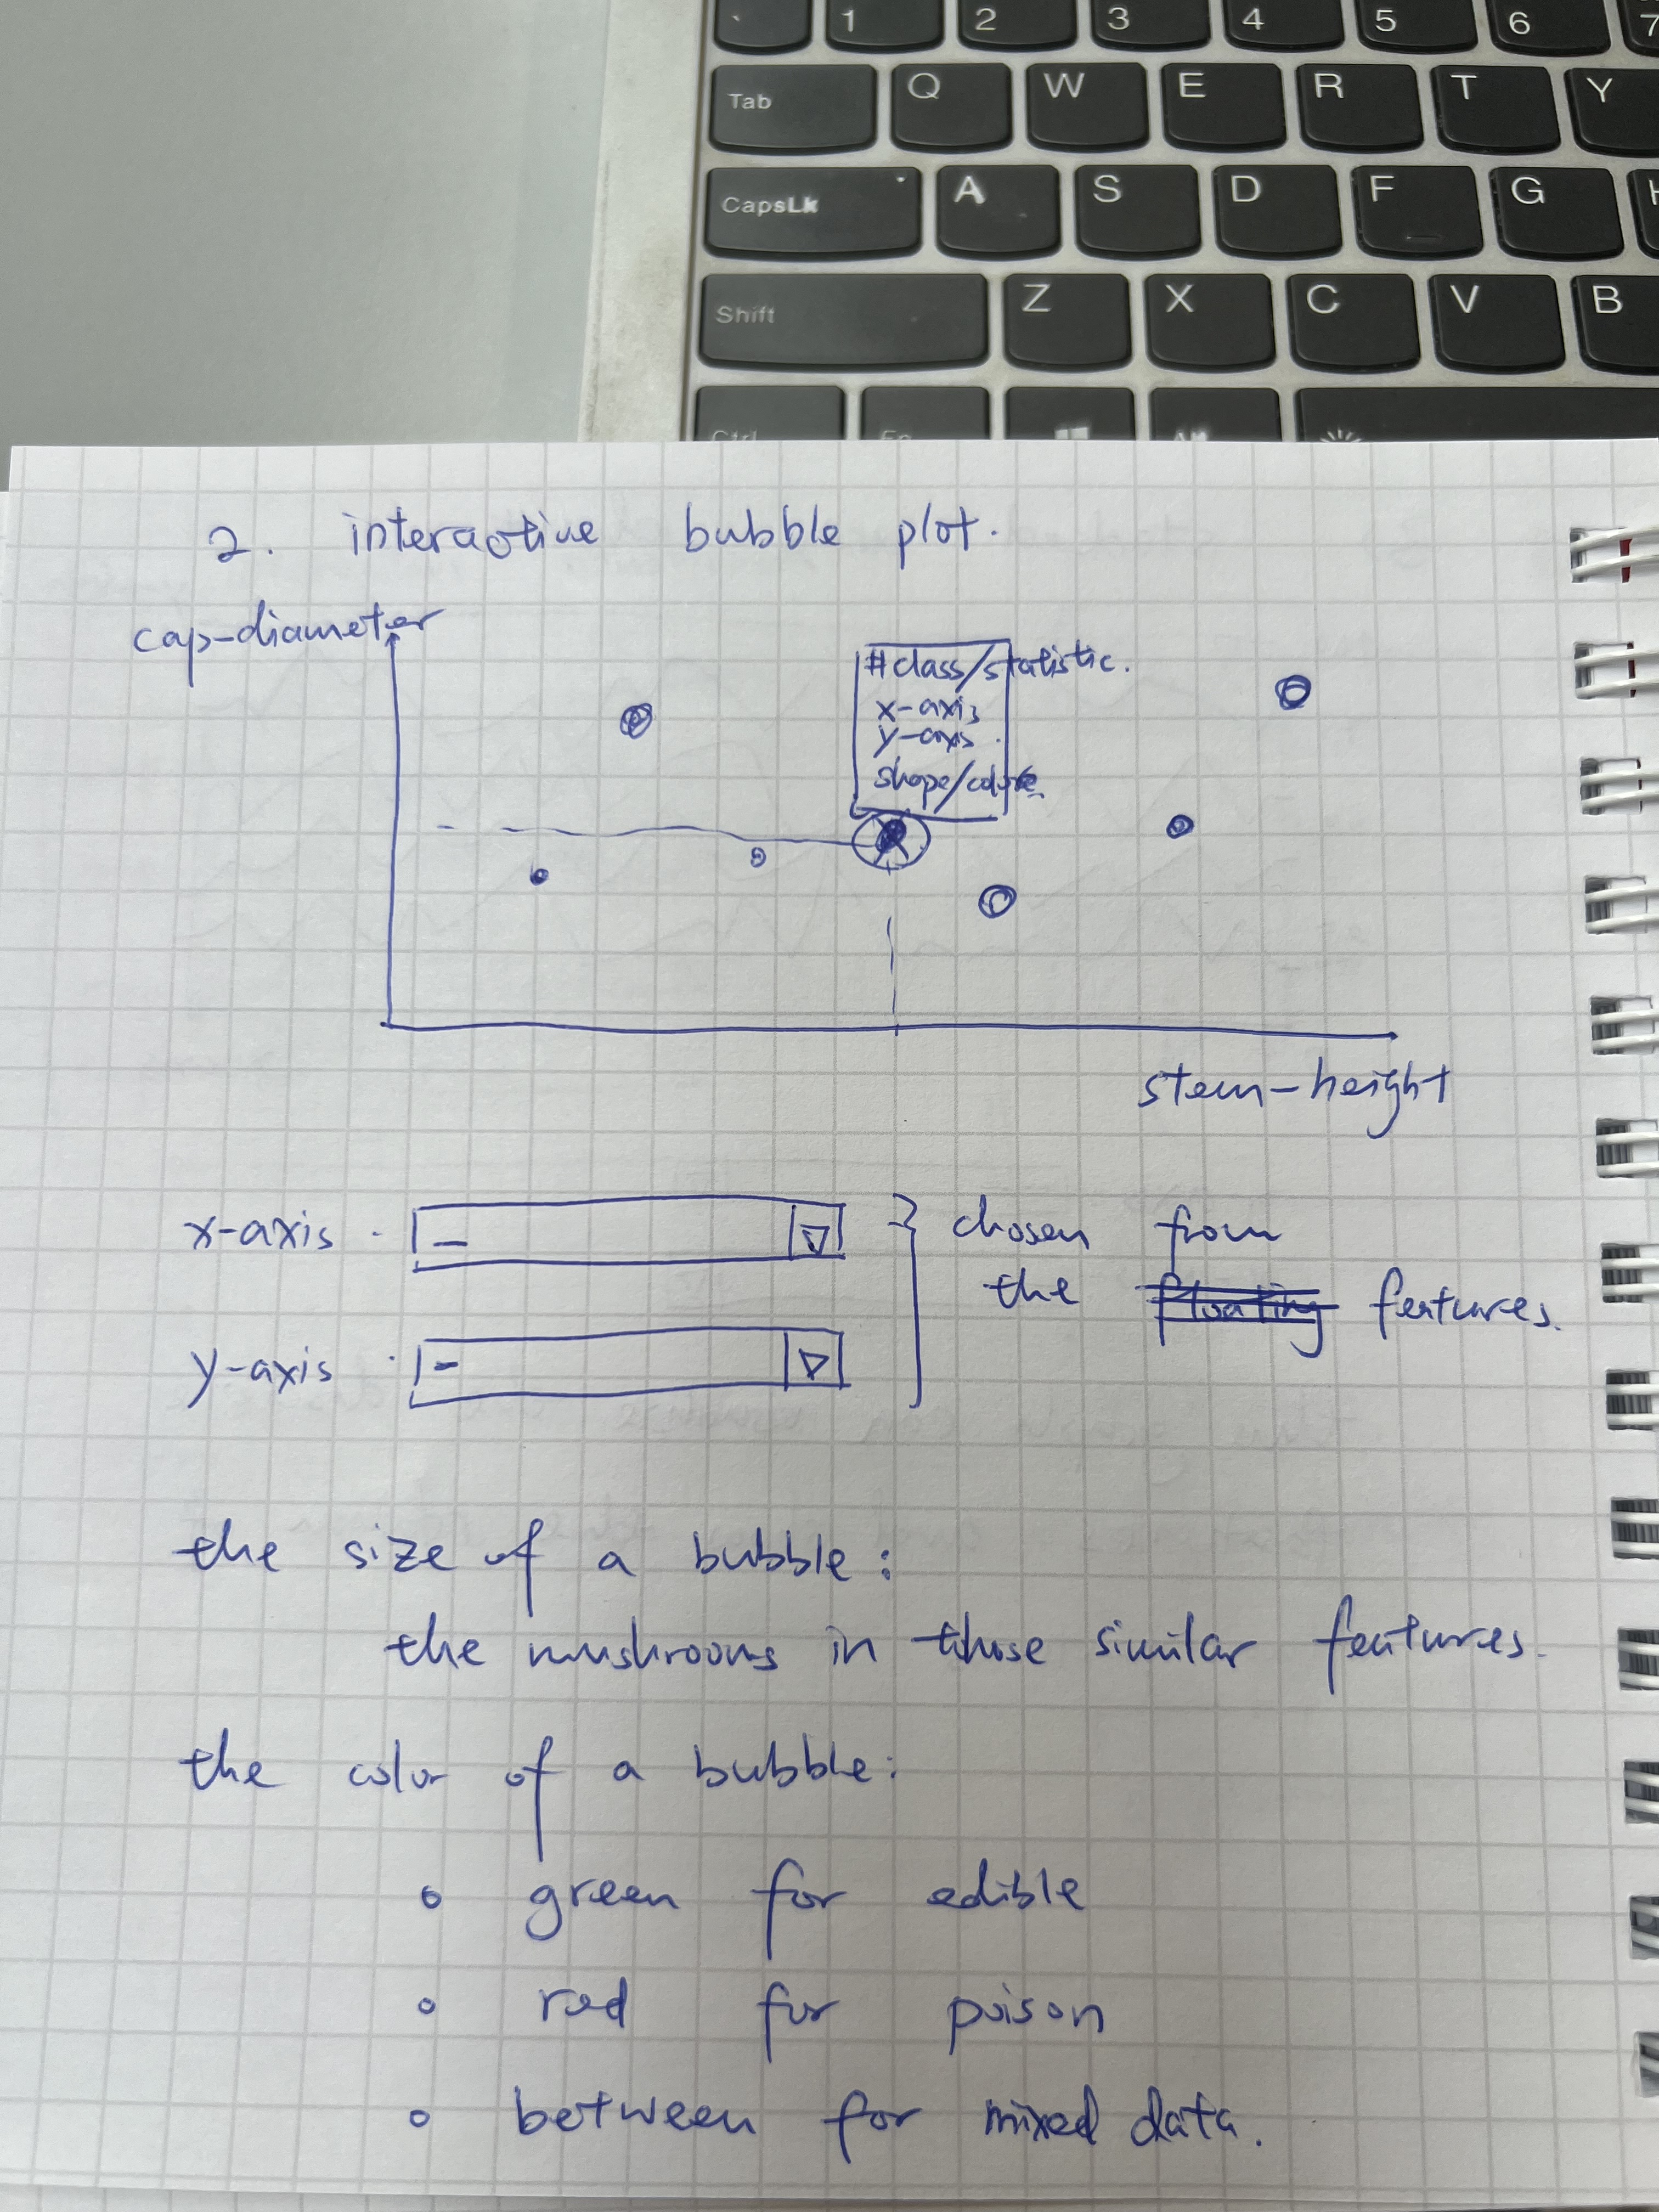 ` 1 2 3 4 5 6 7
Tab Q W E R T Y
CapsLk A S D F G H
Shift Z X C V B
Ctrl Fn Alt
2. interactive bubble plot.
cap-diameter
#class/statistic.
x-axis
y-axis
shape/colore
stem-height
x-axis
chosen from
the floating features.
y-axis
the size of a bubble:
the mushrooms in those similar features.
the color of a bubble:
green for edible
red for poison
between for mixed data.